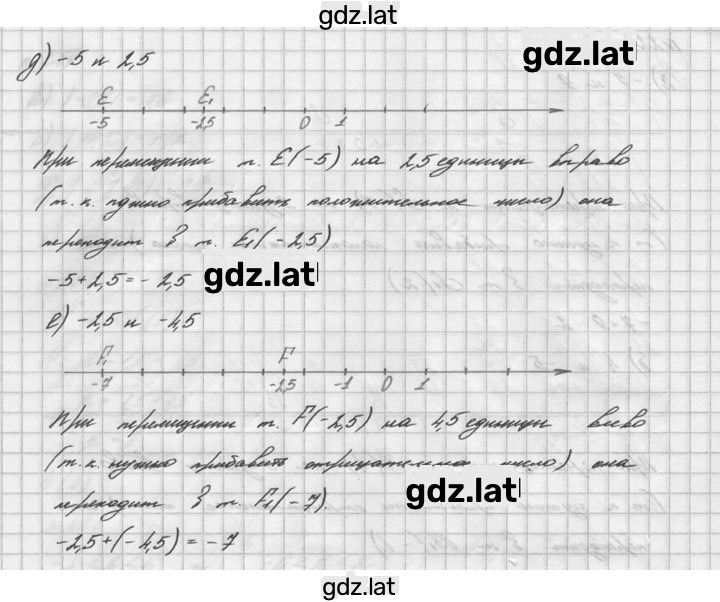 gdz.lat
gdz.lat
д) -5 и 2,5
E E₁
-5 -2,5 0 1
При перемещении т. E(-5) на 2,5 единицы вправо
(т.к. нужно прибавить положительное число) она
переходит в т. E₁(-2,5)
-5+2,5=-2,5
gdz.lat
е) -2,5 и -4,5
F₁ F
-7 -2,5 -1 0 1
При перемещении т. F(-2,5) на 4,5 единицы влево
(т.к. нужно прибавить отрицательное число) она
переходит в т. F₁(-7).
gdz.lat
-2,5+(-4,5)=-7
gdz.lat